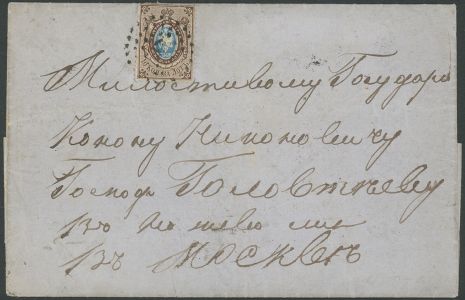 Милостивому Государю
Конону Никоновичу
Господ. Головтѣеву
въ
въ Москвѣ